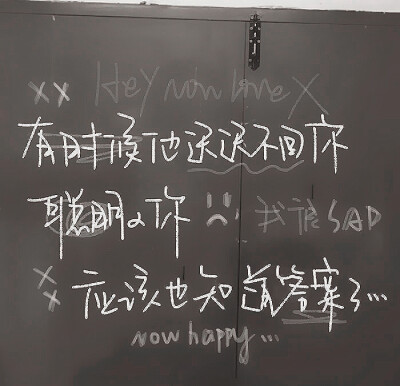 xx Hey love X
有时候他迟迟不回你
聪明的你 :( 我 SAD
xx 应该也知道答案了...
now happy...